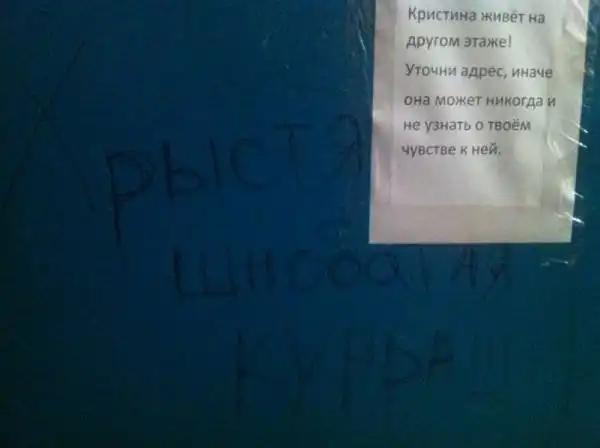 Кристина живёт на
другом этаже!
Уточни адрес, иначе
она может никогда и
не узнать о твоём
чувстве к ней.
РЫСТЯ
КУРВА!!!